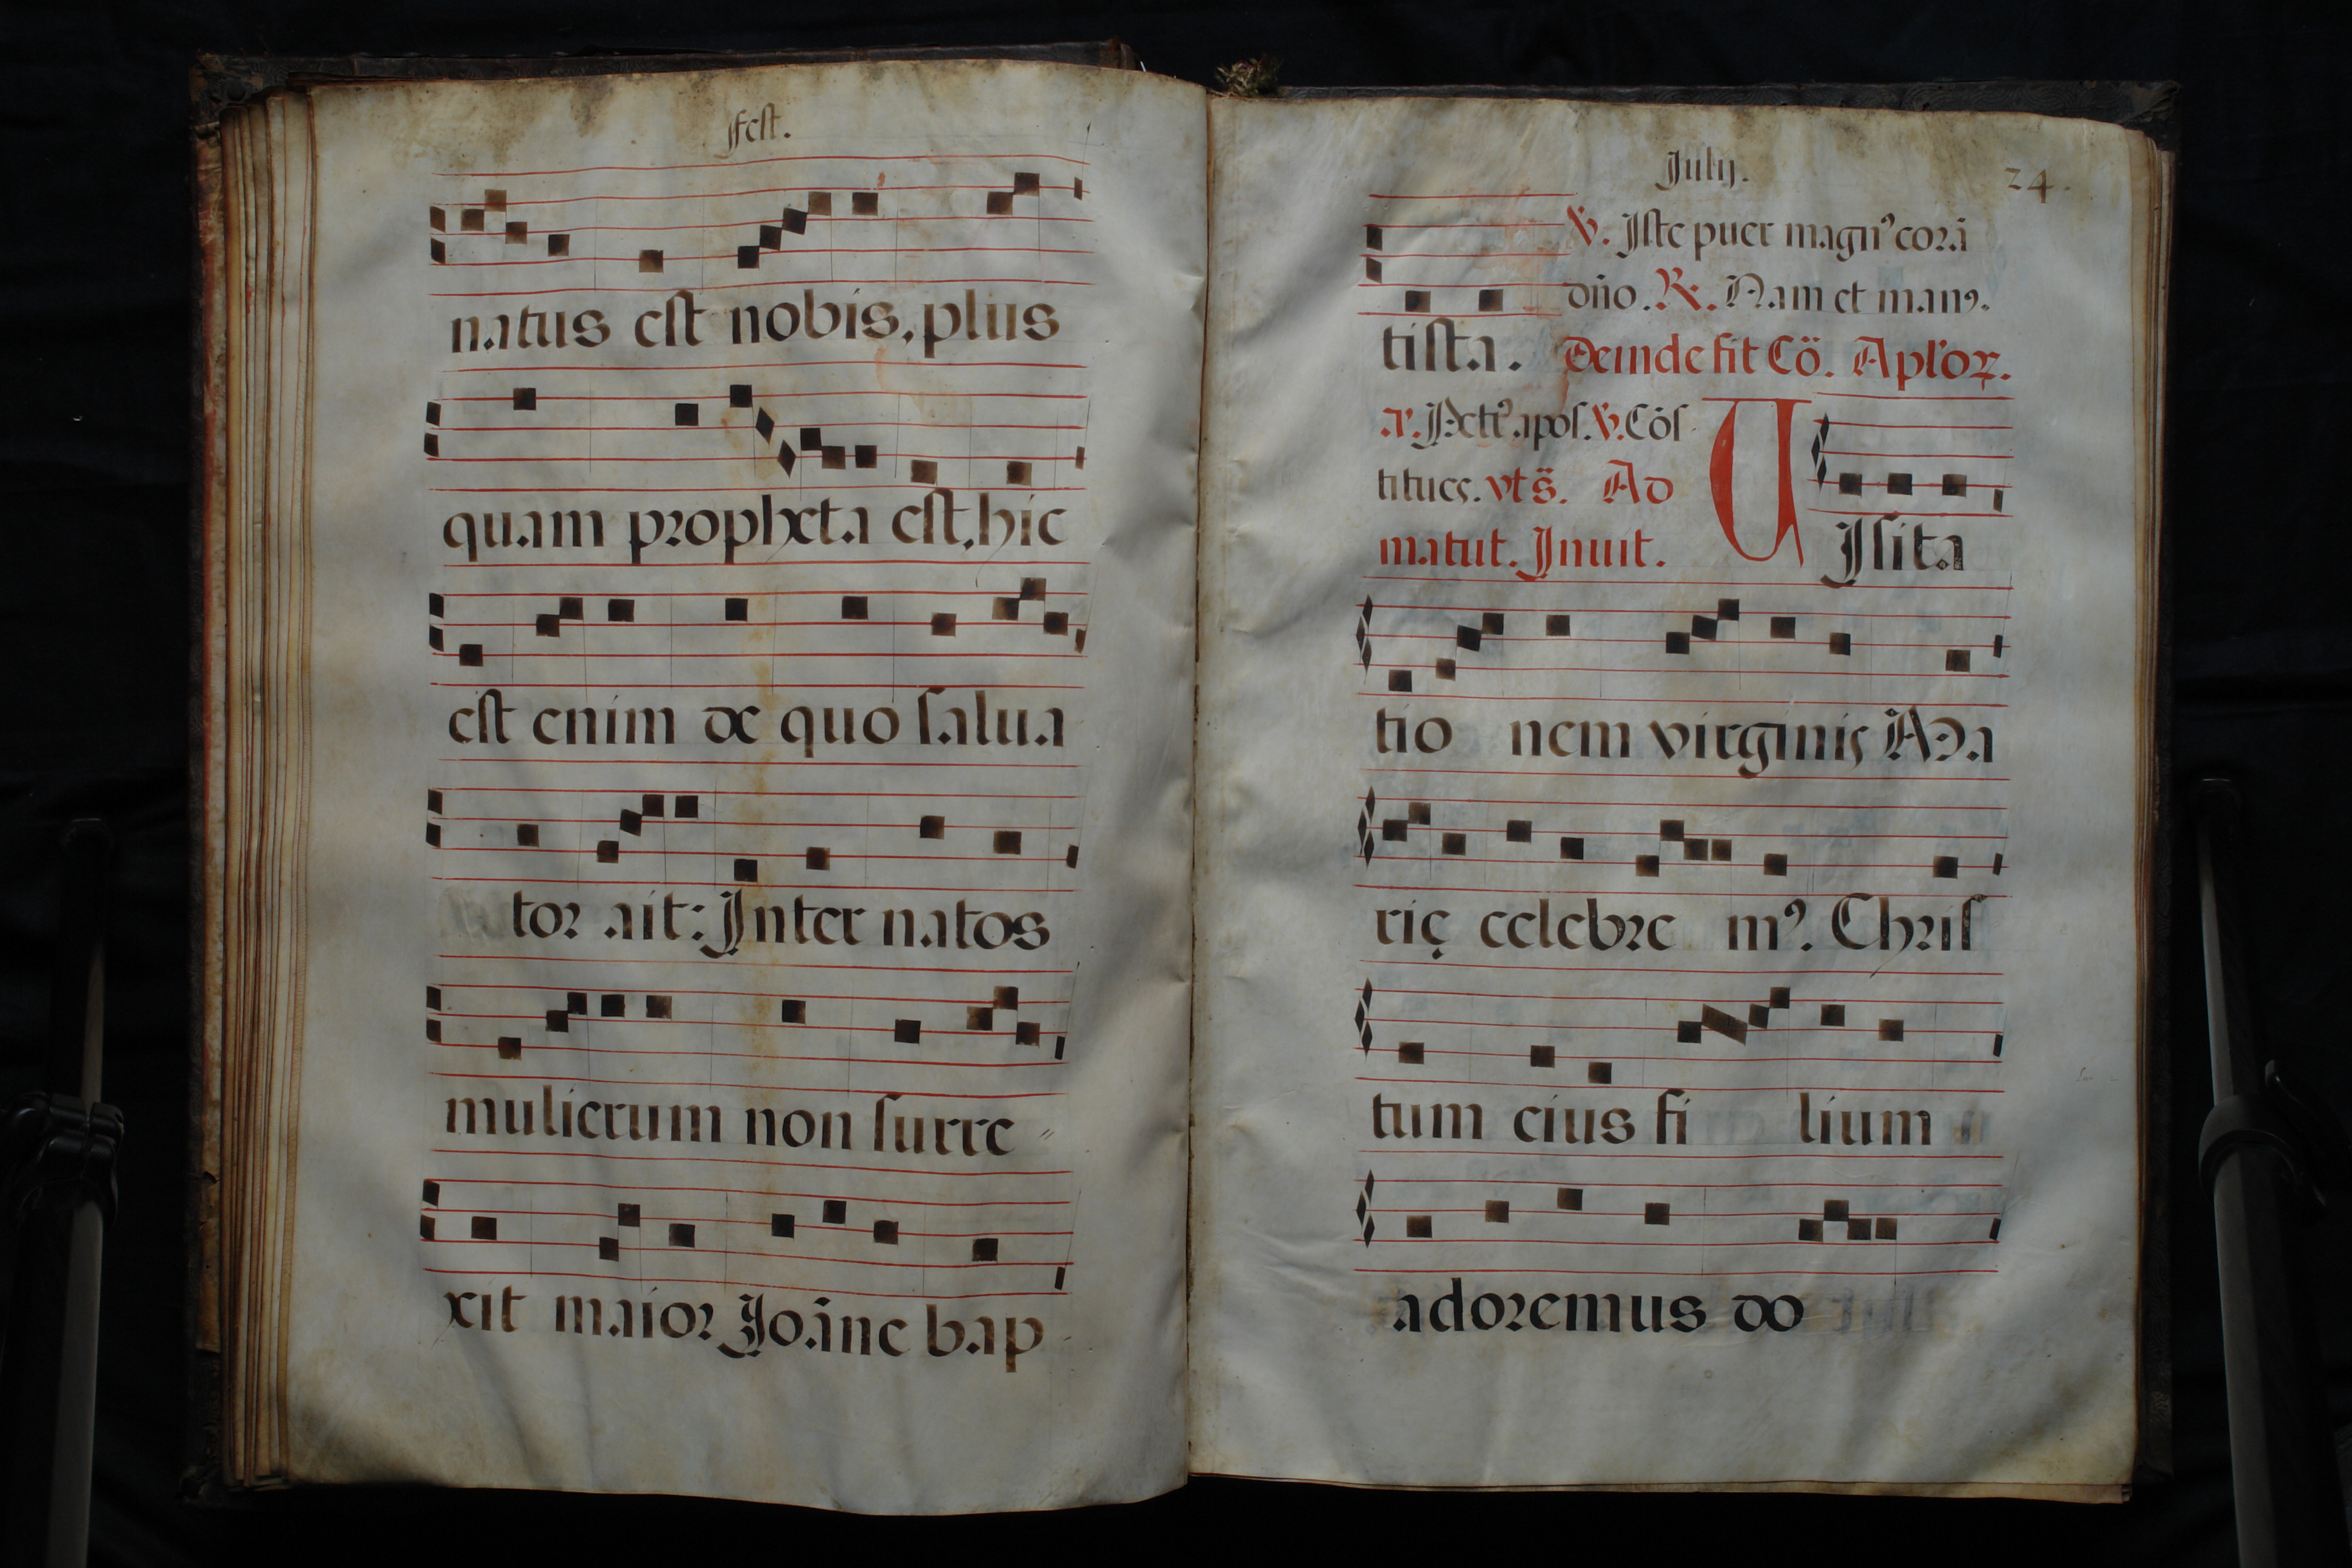 Fest.
natus est nobis, plus
quam propheta est, hic
est enim de quo salua
tor ait: Inter natos
mulierum non surre
xit maior Joãne bap
Julij. 24.
℣. Iste puer magnꝰ corã
dño. ℟. Nam et manꝰ.
tista. Deinde fit Cõ. Aplõꝝ.
a. Petrꝰ apos. ℣. Cõs
titues. vt s̃. Ad
matut. Inuit. VJsita
tio nem virginis Ma
rię celebre mꝰ. Chris
tum eius fi lium
adoremus do